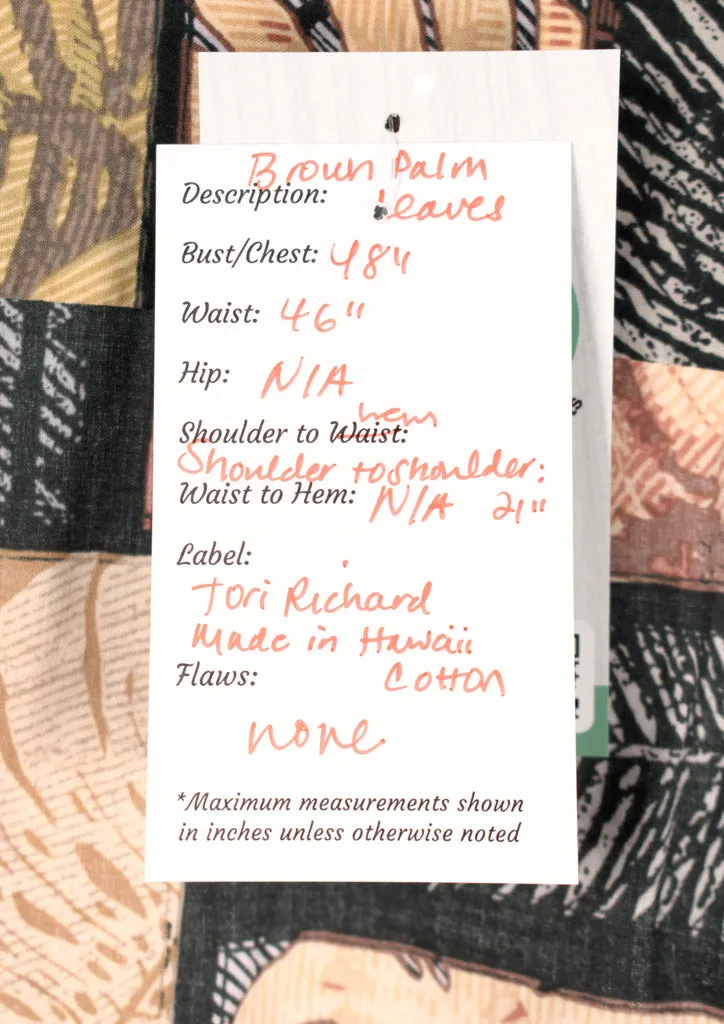 Brown Palm
Description: Leaves
Bust/Chest: 48"
Waist: 46"
Hip: N/A
hem
Shoulder to Waist:
Shoulder to shoulder:
Waist to Hem: N/A 21"
Label:
Tori Richard
Made in Hawaii
Flaws: Cotton
none
*Maximum measurements shown
in inches unless otherwise noted